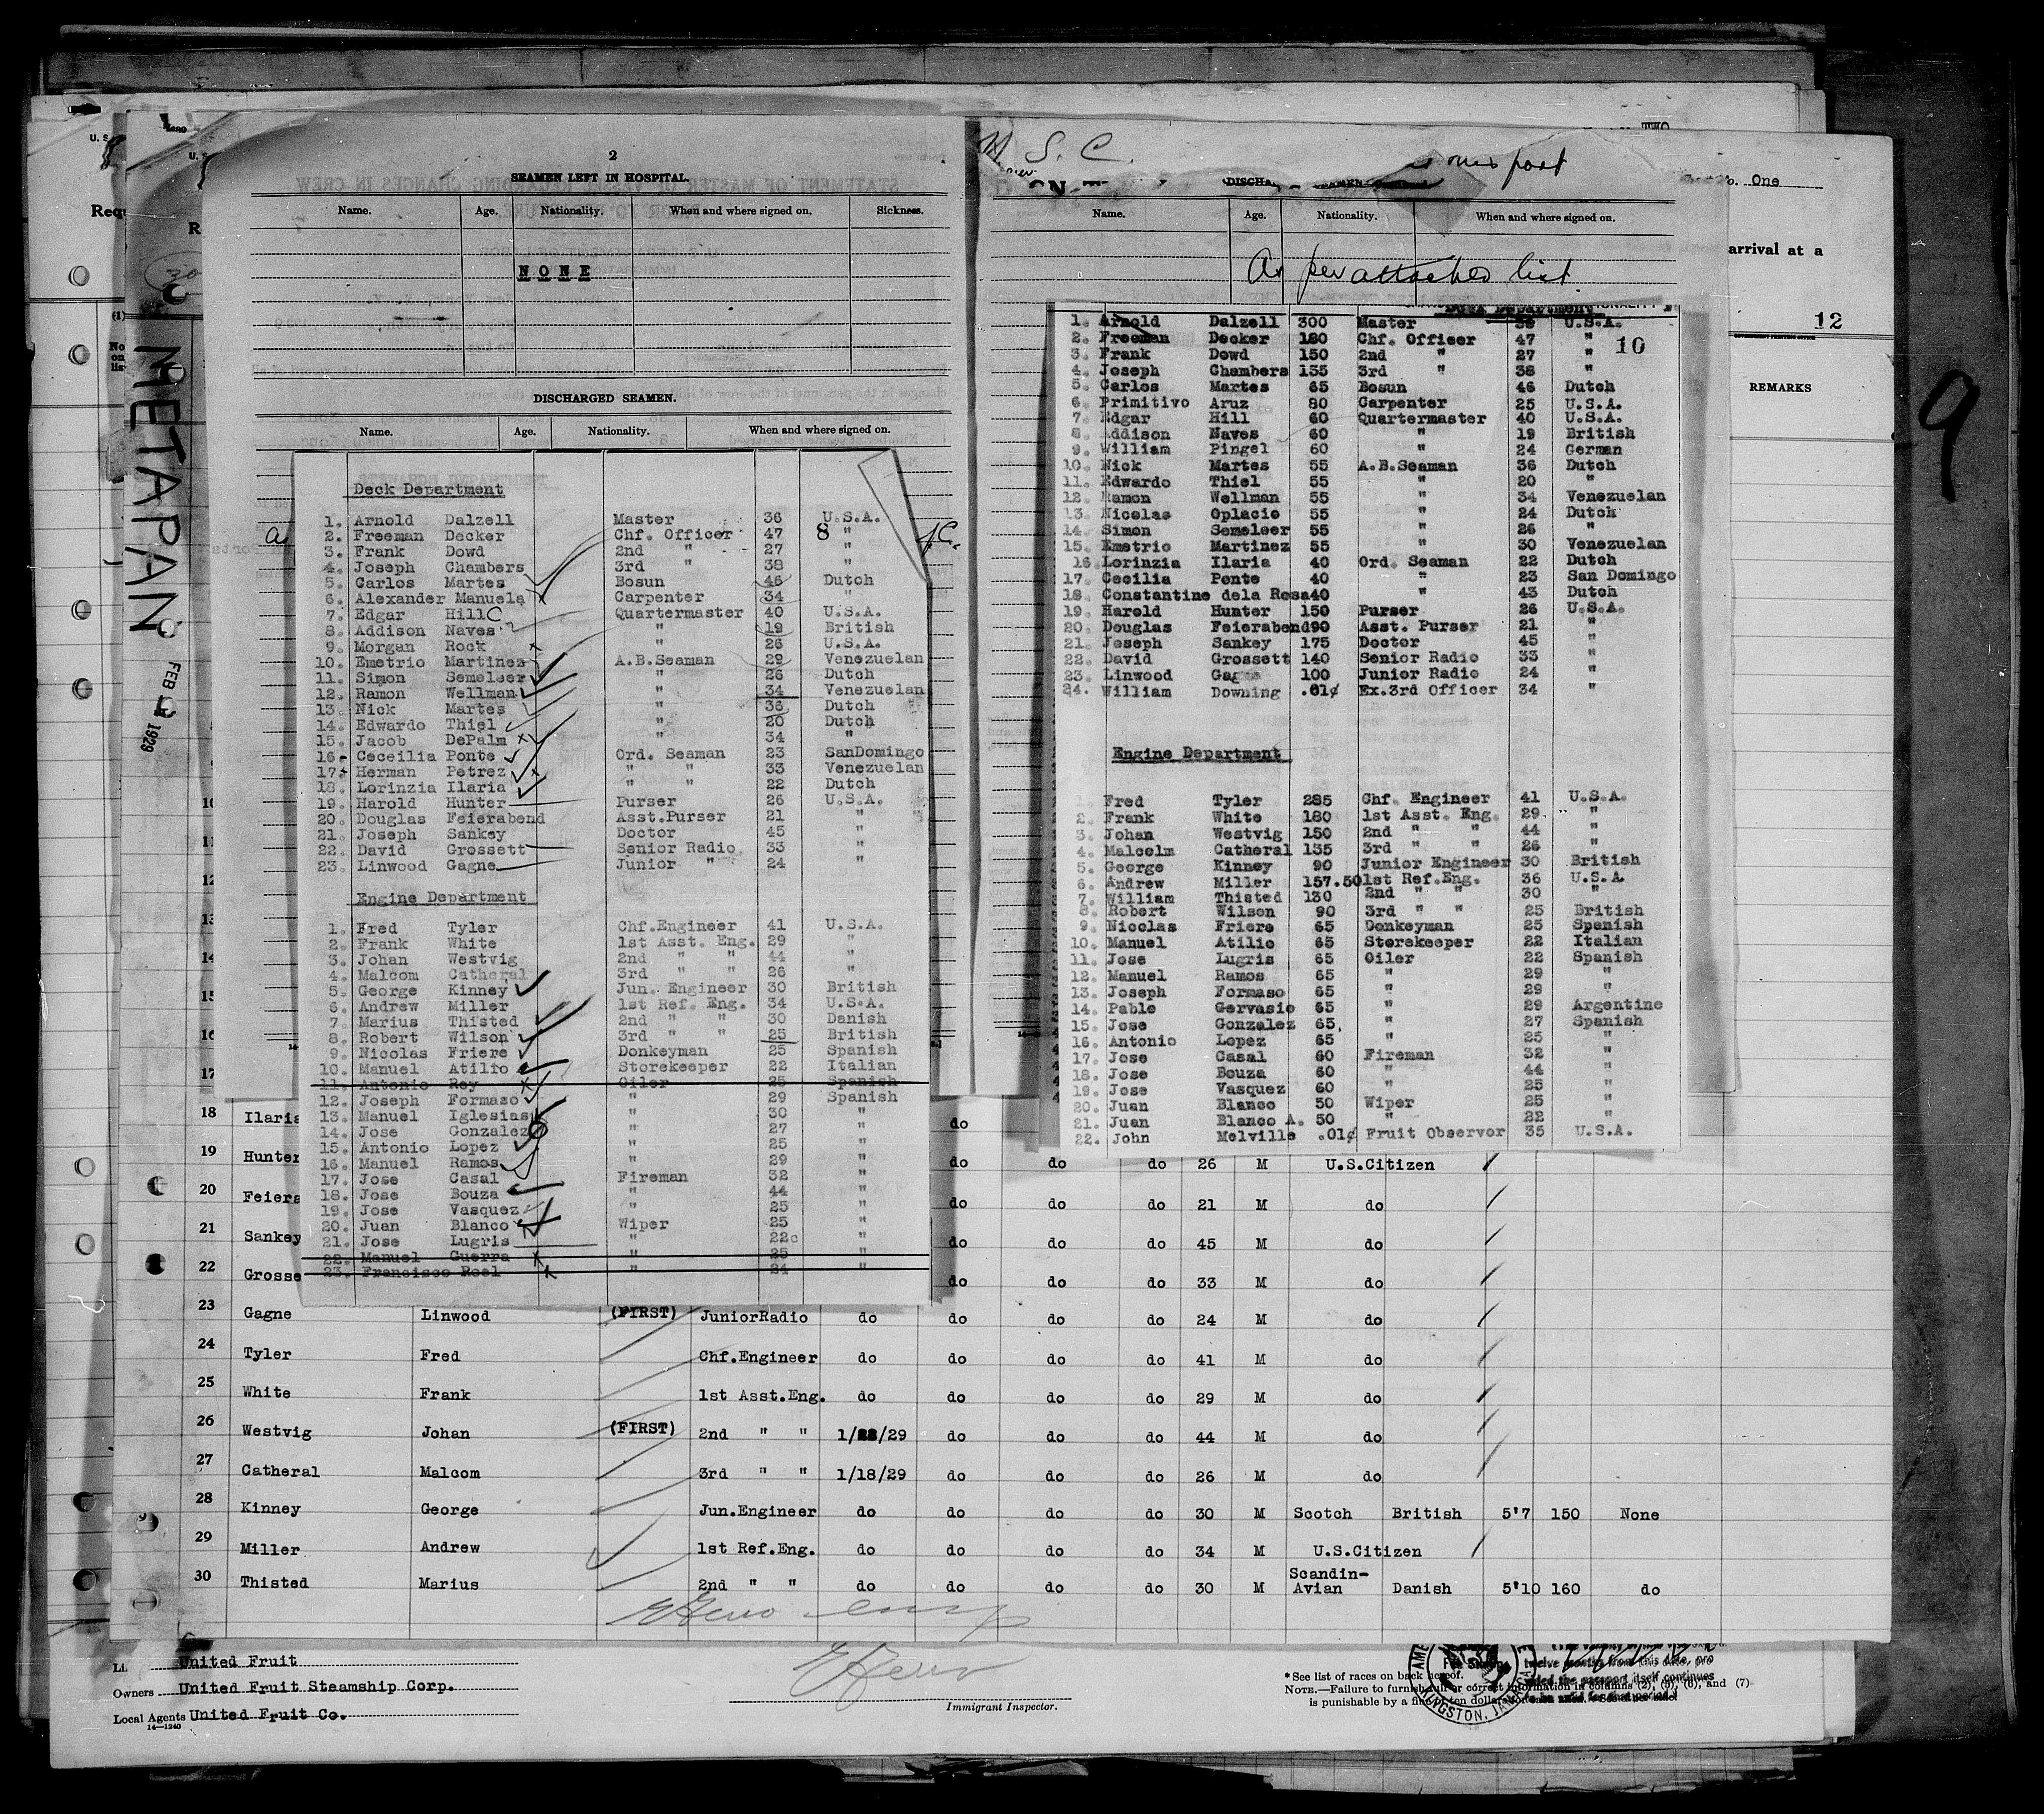 2
SEAMEN LEFT IN HOSPITAL.
Name. Age. Nationality. When and where signed on. Sickness.
NONE
DISCHARGED SEAMEN.
Name. Age. Nationality. When and where signed on.
METAPAN
FEB 1929
Deck Department
1. Arnold Dalzell Master 36 U.S.A.
2. Freeman Decker Chf. Officer 47 8 "
3. Frank Dowd 2nd " 27 "
4. Joseph Chambers 3rd " 38 "
5. Carlos Martes Bosun 46 Dutch
6. Alexander Manuela Carpenter 34 "
7. Edgar Hill C Quartermaster 40 U.S.A.
8. Addison Naves " 19 British
9. Morgan Rock " 26 U.S.A.
10. Emetrio Martinez A.B.Seaman 29 Venezuelan
11. Simon Semeleer " 26 Dutch
12. Ramon Wellman " 34 Venezuelan
13. Nick Martes " 36 Dutch
14. Edwardo Thiel " 20 Dutch
15. Jacob DePalm " 34 "
16. Ceceilia Ponte Ord. Seaman 23 SanDomingo
17. Herman Petrez " " 33 Venezuelan
18. Lorinzia Ilaria " " 22 Dutch
19. Harold Hunter Purser 26 U.S.A.
20. Douglas Feierabend Asst.Purser 21 "
21. Joseph Sankey Doctor 45 "
22. David Grossett Senior Radio 33 "
23. Linwood Gagne Junior " 24 "
Engine Department
1. Fred Tyler Chf.Engineer 41 U.S.A.
2. Frank White 1st Asst. Eng. 29 "
3. Johan Westvig 2nd " " 44 "
4. Malcom Catheral 3rd " " 26 "
5. George Kinney Jun. Engineer 30 British
6. Andrew Miller 1st Ref. Eng. 34 U.S.A.
7. Marius Thisted 2nd " " 30 Danish
8. Robert Wilson 3rd " " 25 British
9. Nicolas Friere Donkeyman 25 Spanish
10. Manuel Atilio Storekeeper 22 Italian
11. Antonio Rey Oiler 25 Spanish
12. Joseph Formaso " 29 Spanish
13. Manuel Iglesias " 30 "
14. Jose Gonzalez " 27 "
15. Antonio Lopez " 25 "
16. Manuel Ramos " 29 "
17. Jose Casal Fireman 32 "
18. Jose Bouza " 44 "
19. Jose Vasquez " 25 "
20. Juan Blanco Wiper 25 "
21. Jose Lugris " 22c "
22. Manuel Guerra " 25 "
23. Francisco Roel " 24 "
S. C.
One
Name. Age. Nationality. When and where signed on.
As per attached list.
arrival at a
12
REMARKS
9
Deck Department
1. Arnold Dalzell 300 Master 36 U.S.A.
2. Freeman Decker 180 Chf. Officer 47 "
10
3. Frank Dowd 150 2nd " 27 "
4. Joseph Chambers 135 3rd " 38 "
5. Carlos Martes 65 Bosun 46 Dutch
6. Primitivo Aruz 80 Carpenter 25 U.S.A.
7. Edgar Hill 60 Quartermaster 40 U.S.A.
8. Addison Naves 60 " 19 British
9. William Pingel 60 " 24 German
10. Nick Martes 55 A.B.Seaman 36 Dutch
11. Edwardo Thiel 55 " 20 "
12. Ramon Wellman 55 " 34 Venezuelan
13. Nicolas Oplacio 55 " 24 Dutch
14. Simon Semeleer 55 " 26 "
15. Emetrio Martinez 55 " 30 Venezuelan
16. Lorinzia Ilaria 40 Ord. Seaman 22 Dutch
17. Cecilia Ponte 40 " 23 San Domingo
18. Constantine dela Rosa 40 " 43 Dutch
19. Harold Hunter 150 Purser 26 U.S.A.
20. Douglas Feierabend 90 Asst. Purser 21 "
21. Joseph Sankey 175 Doctor 45 "
22. David Grossett 140 Senior Radio 33 "
23. Linwood Gagne 100 Junior Radio 24 "
24. William Downing .01¢ Ex.3rd Officer 34 "
Engine Department
Fred Tyler 285 Chf. Engineer 41 U.S.A.
2. Frank White 180 1st Asst. Eng. 29 "
3. Johan Westvig 150 2nd " " 44 "
4. Malcolm Catheral 135 3rd " " 26 "
5. George Kinney 90 Junior Engineer 30 British
6. Andrew Miller 157.50 1st Ref.Eng. 36 U.S.A
7. William Thisted 130 2nd " " 30 "
8. Robert Wilson 90 3rd " " 25 British
9. Nicolas Friere 65 Donkeyman 25 Spanish
10. Manuel Atilio 65 Storekeeper 22 Italian
11. Jose Lugris 65 Oiler 22 Spanish
12. Manuel Ramos 65 " 29 "
13. Joseph Formaso 65 " 29 "
14. Pablo Gervasio 65 " 29 Argentine
15. Jose Gonzalez 65 " 27 Spanish
16. Antonio Lopez 65 " 25 "
17. Jose Casal 60 Fireman 32 "
18. Jose Bouza 60 " 44 "
19. Jose Vasquez 60 " 25 "
20. Juan Blanco 50 Wiper 25 "
21. Juan Blanco A. 50 " 22 "
22. John Melville .01¢ Fruit Observor 35 U.S.A.
10
11
12
13
14
15
16
17
18 Ilaria do
19 Hunter do do do 26 M U.S.Citizen
20 Feiera do do do 21 M do
21 Sankey do do do 45 M do
22 Grosse do do do 33 M do
23 Gagne Linwood (FIRST) JuniorRadio do do do do 24 M do
24 Tyler Fred Chf.Engineer do do do do 41 M do
25 White Frank 1st Asst.Eng. do do do do 29 M do
26 Westvig Johan (FIRST) 2nd " " 1/22/29 do do do 44 M do
27 Catheral Malcom 3rd " " 1/18/29 do do do 26 M do
28 Kinney George Jun.Engineer do do do do 30 M Scotch British 5'7 150 None
29 Miller Andrew 1st Ref.Eng. do do do do 34 M U.S.Citizen
30 Thisted Marius 2nd " " do do do do 30 M Scandin-Avian Danish 5'10 160 do
United Fruit
Owners United Fruit Steamship Corp.
Local Agents United Fruit Co.
14—1240
Immigrant Inspector.
* See list of races on back hereof.
NOTE.—Failure to furnish full or correct information in columns (2), (5), (6), and (7)
is punishable by a fine of ten dollars